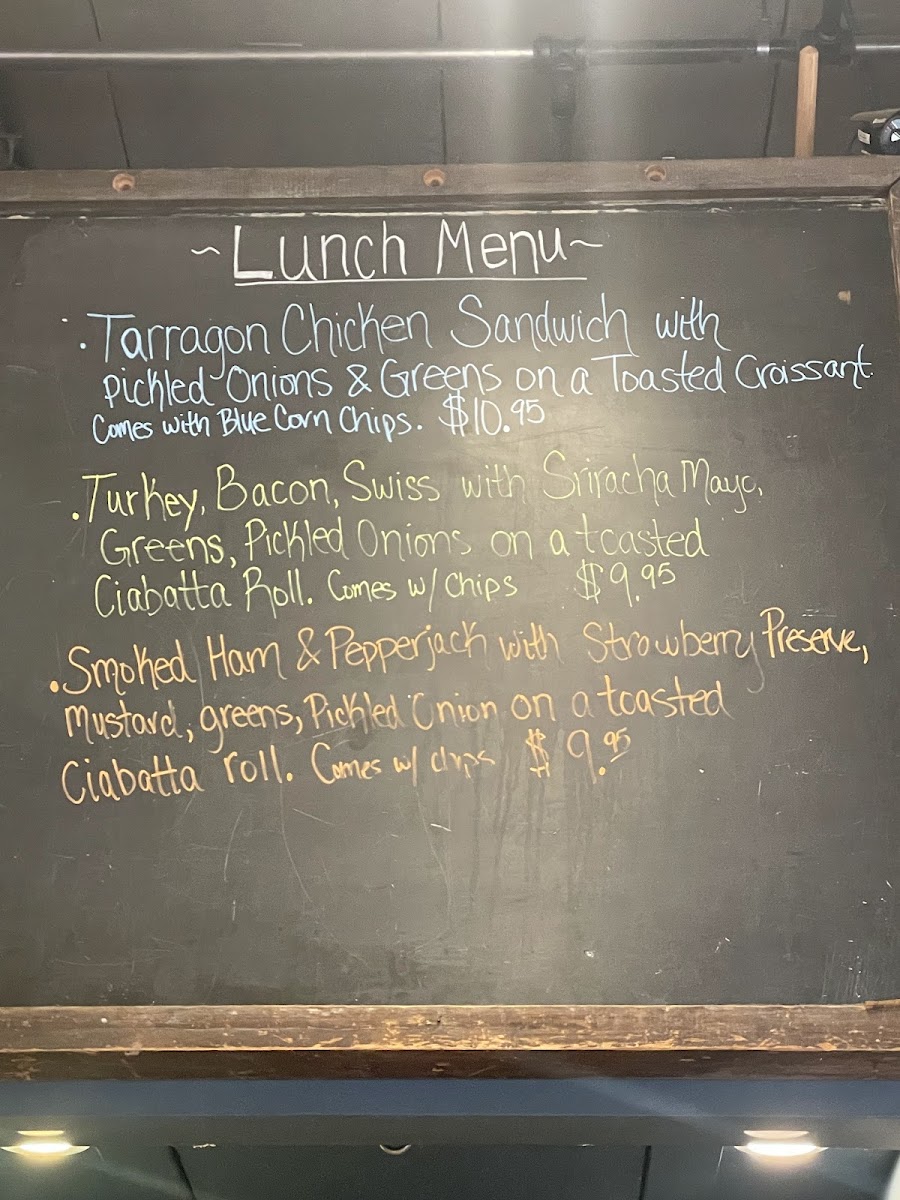 ~Lunch Menu~
• Tarragon Chicken Sandwich with
Pickled Onions & Greens on a Toasted Croissant.
Comes with Blue Corn Chips. $10.95
• Turkey, Bacon, Swiss with Sriracha Mayo,
Greens, Pickled Onions on a toasted
Ciabatta Roll. Comes w/ chips $9.95
• Smoked Ham & Pepperjack with Strawberry Preserve,
Mustard, greens, Pickled Onion on a toasted
Ciabatta roll. Comes w/ chips $9.95